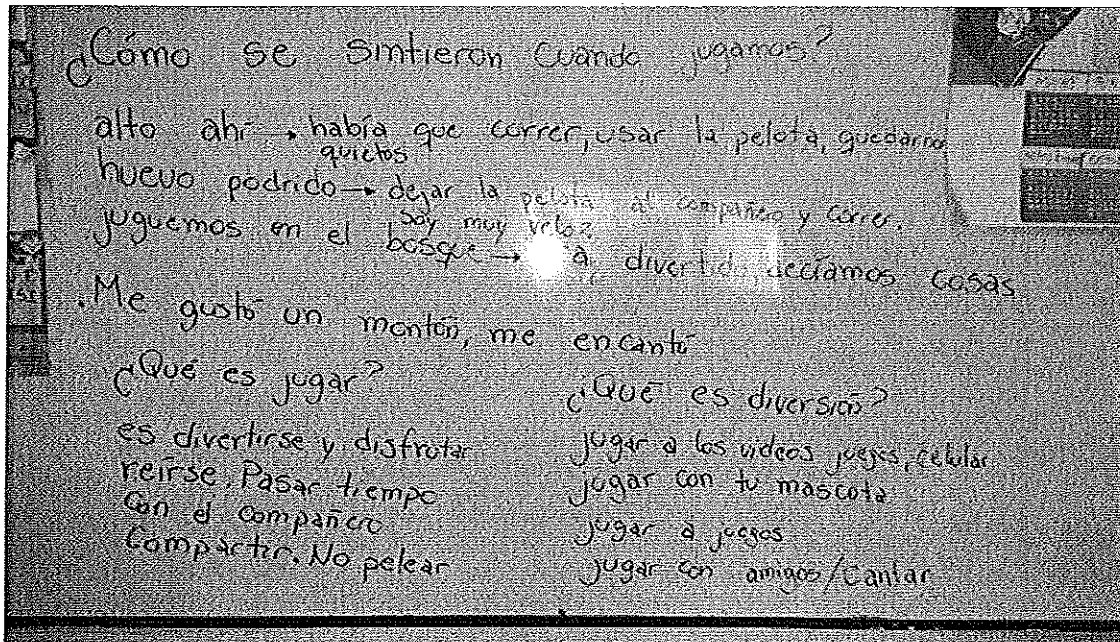 ¿Cómo se sintieron cuando jugamos?
alto ahí → había que correr, usar la pelota, quedarno
quietos
huevo podrido → dejar la pelota al compañero y correr.
soy muy veloz
juguemos en el bosque → a divertid decíamos cosas
. Me gustó un montón, me encantó
¿Qué es jugar?
es divertirse y disfrutar
reírse. Pasar tiempo
con el compañero
Compartir. No pelear
¿Qué es diversión?
jugar a los videos juegos, celular
jugar con tu mascota
jugar a juegos
jugar con amigos/cantar